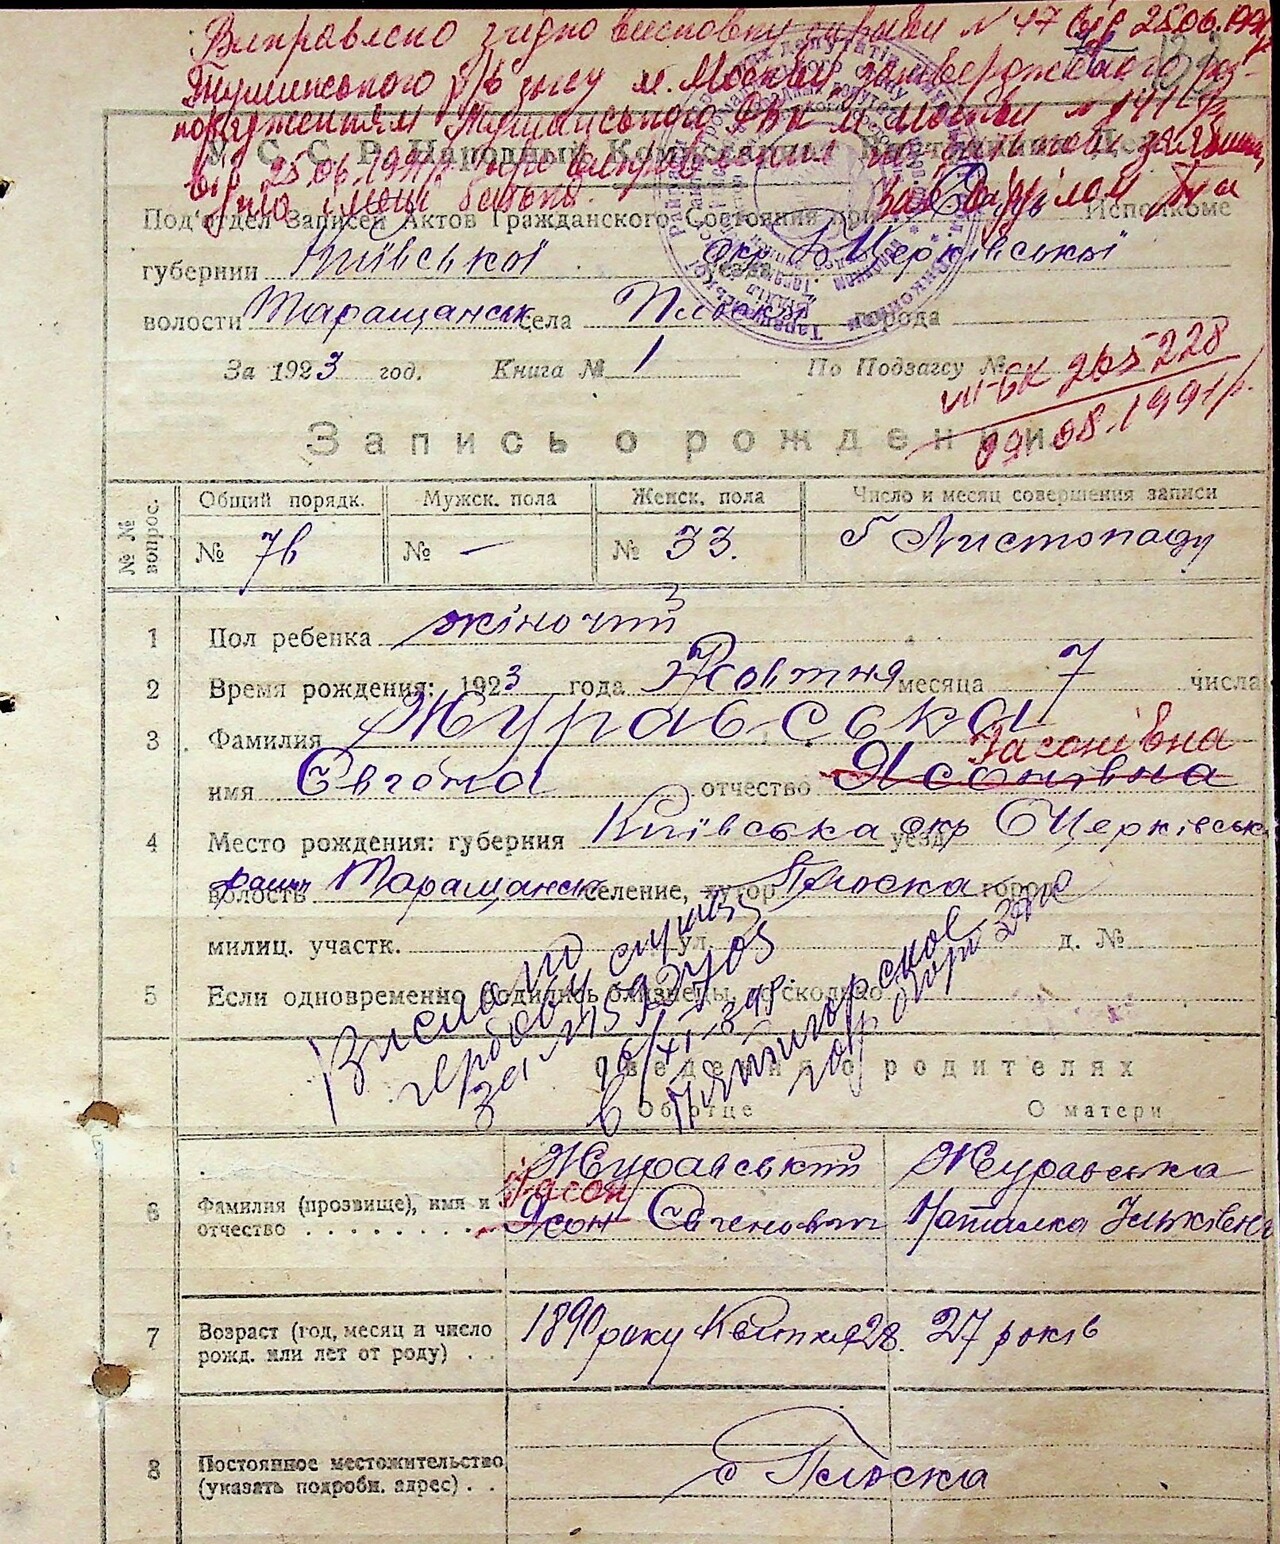 Виправлено згідно висновку справи № 47 від 25.06.1991р
Тушинського р/в загсу м. Москви затвердженого роз-
порядженням Тушинського РВК м. Москви № 141 р
від 25.06.1991р про виправлення по батькові заявниці
та імені батька. Зав.
У. С. С. Р. Народный Комиссариат Внутренних Дел
Под'отдел Записей Актов Гражданского Состояния при Исполкоме
губернии Київської окр Б Церківської
волости Таращанськ села Плоски города
За 1923 год. Книга № 1 По Подзагсу №
VII-БК 265228
09.08.1991р.
Запись о рождении
№ № вопрос. Общий порядк. Мужск. пола Женск. пола Число и месяц совершения записи
№ 76 № — № 33. 5 Листопаду
1 Пол ребенка жіночий
2 Время рождения: 1923 года Жовтня месяца 7 числа
3 Фамилия Журавська
Іасонівна
имя Євгена отчество Ясонівна
4 Место рождения: губерния Київська окр уезд БЦерківськ
волость район Таращанськ селение, хутор Плоска город
милиц. участк. ул. д. №
5 Если одновременно родились близнецы, то сколько
Вислано
гербову
за №
в Пятигорское
Сведения о родителях
Об отце О матери
Журавський Журавська
Іасон
6 Фамилия (прозвище), имя и отчество . . . . . . . . Ясон Євгенович Наталка Ільківна
7 Возраст (год, месяц и число рожд. или лет от роду) . . 1890 року Квітня 28. 27 років
8 Постоянное местожительство (указать подробн. адрес) . . с Плоска